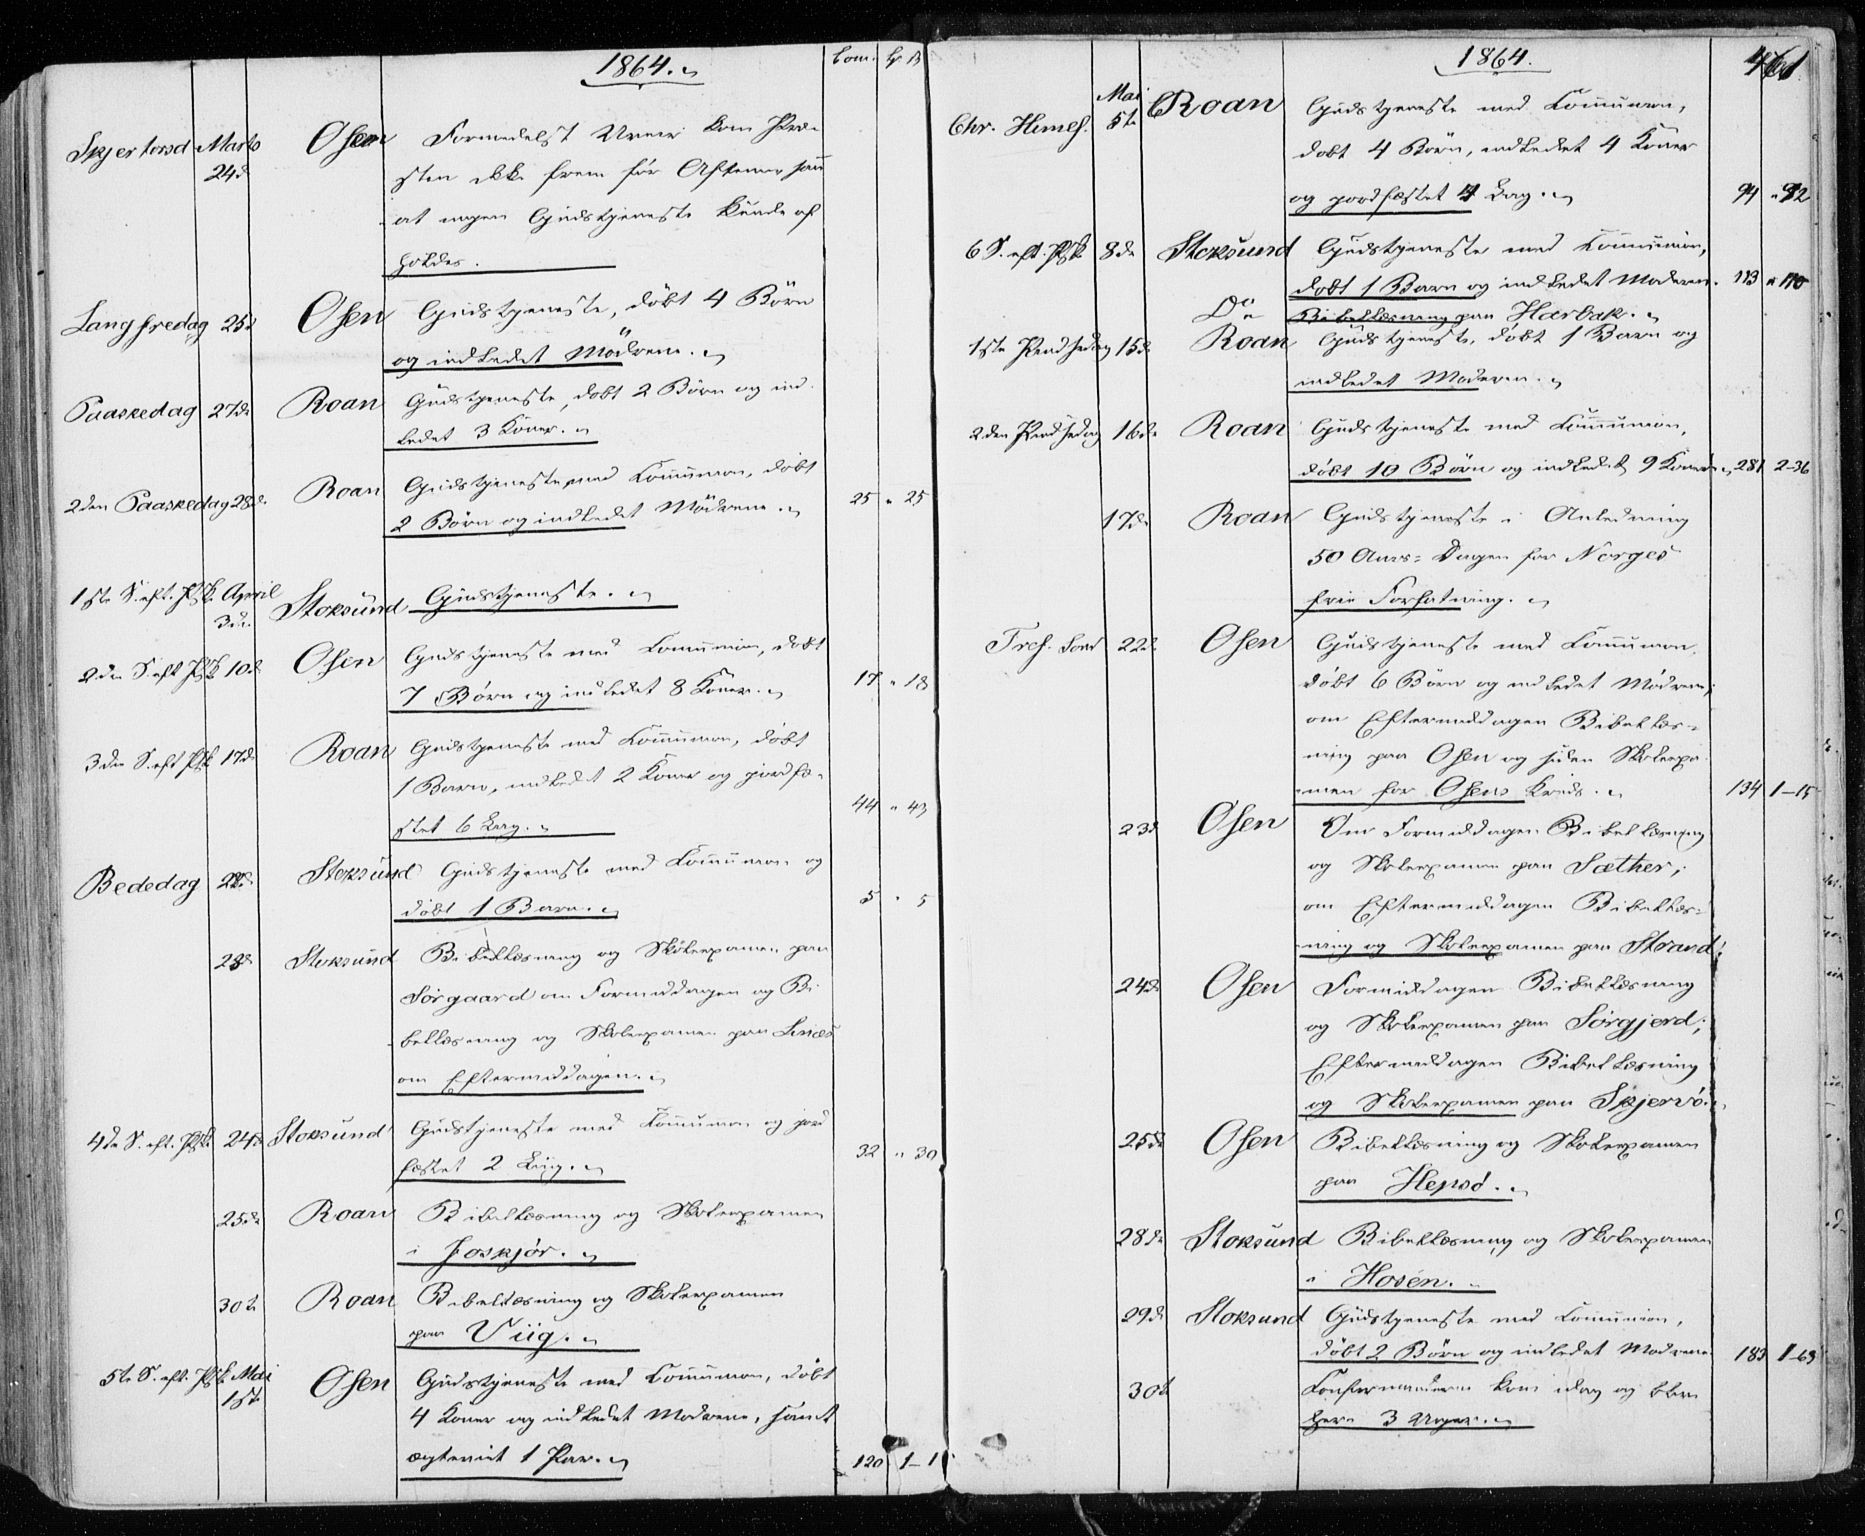 1864.
Com. Sp ß
Skjertorsd Marts 24d Osen Formedelst Uveir kom Præ-
sten ikke frem før Aftenen saa
at ingen Gudstjeneste kunde af
holdes.
Langfredag 25d Osen Gudstjeneste, døbt 4 Børn
og indledet Mødrene.
Paaskedag 27de Roan Gudstjeneste, døbt 2 Børn og ind-
ledet 3 Koner.
2den Paaskedag 28de Roan Gudstjeneste med Communion, døbt
2 Børn og indledet Mødrene. 25 " 25
1ste S. eft. Psk. April 3die Stoksund Gudstjeneste.
2den S. eft Psk 10d Osen Gudstjeneste med Communion, døbt
7 Børn og indledet 8 Koner. 17 " 18
3die S. eft Psk 17de Roan Gudstjeneste med Communion, døbt
1 Barn, indledet 2 Koner og jordfæ-
stet 6 Lig. 44 " 43
Bededag 22d. Stoksund Gudstjeneste med Communion og
døbt 1 Barn. 5 " 5
23d Stoksund Bibellæsning og Skoleexamen paa
Sørgaard om Formiddagen og Bi-
bellæsning og Skoleexamen paa Linæs
om Eftermiddagen.
4de S. eft. Psk. 24d Stoksund Gudstjeneste med Communion og jord
fæstet 2 Liig. 32 " 30
25de Roan Bibellæsning og Skoleexamen
i Foskjør.
30te Roan Bibellæsning og Skoleexamen
paa Viig.
5te S. eft. Psk. Mai 1ste Osen Gudstjeneste med Communion, døbt
4 Koner og indledet Mødrene, samt
ægteviet 1 Par. 120 1-1
1864.
461
Chr. Himlf. Mai 5te Roan Gudstjeneste med Communion,
døbt 4 Børn, indledet 4 Koner
og jordfæstet 4 Lag. 94 " 92
6 S. eft. Psk 8de Stoksund Gudstjeneste med Communion,
døbt 1 Barn og indledet Moderen. 113 " 110
Do Bibellæsning paa Harbak.
1ste Pindsedag 15de Roan Gudstjeneste, døbt 1 Barn og
indledet Moderen.
2den Pindsedag 16de Roan Gudstjeneste med Communion,
døbt 10 Børn og indledet 9 Koner. 281 2-36
17de Roan Gudstjeneste i Anledning
50 Aars-Dagen for Norges
frie Forfatning.
Tref. Sond 22d. Osen Gudstjeneste med Communion,
døbt 6 Børn og indledet Mødrene;
om Eftermiddagen Bibellæs-
ning paa Osen og siden Skoleexa-
men for Osens Kreds. 134 1-15
23d Osen Om Formiddagen Bibellæsning
og Skoleexamen paa Sæther;
om Eftermiddagen Bibellæs-
ning og Skoleexamen paa Strand.
24de Osen Formiddagen Bibellæsning
og Skoleexamen paa Sørgjerd;
Eftermiddagen Bibellæsning
og Skoleexamen paa Skjervø.
25de Osen Bibellæsning og Skoleexamen
paa Hepsø.
28de Stoksund Bibellæsning og Skoleexamen
i Hosen.
29de Stoksund Gudstjeneste med Communion,
døbt 2 Børn og indledet Mødrene 183 1-63
30te Confirmanderne kom idag og blev
her 3 Uger.